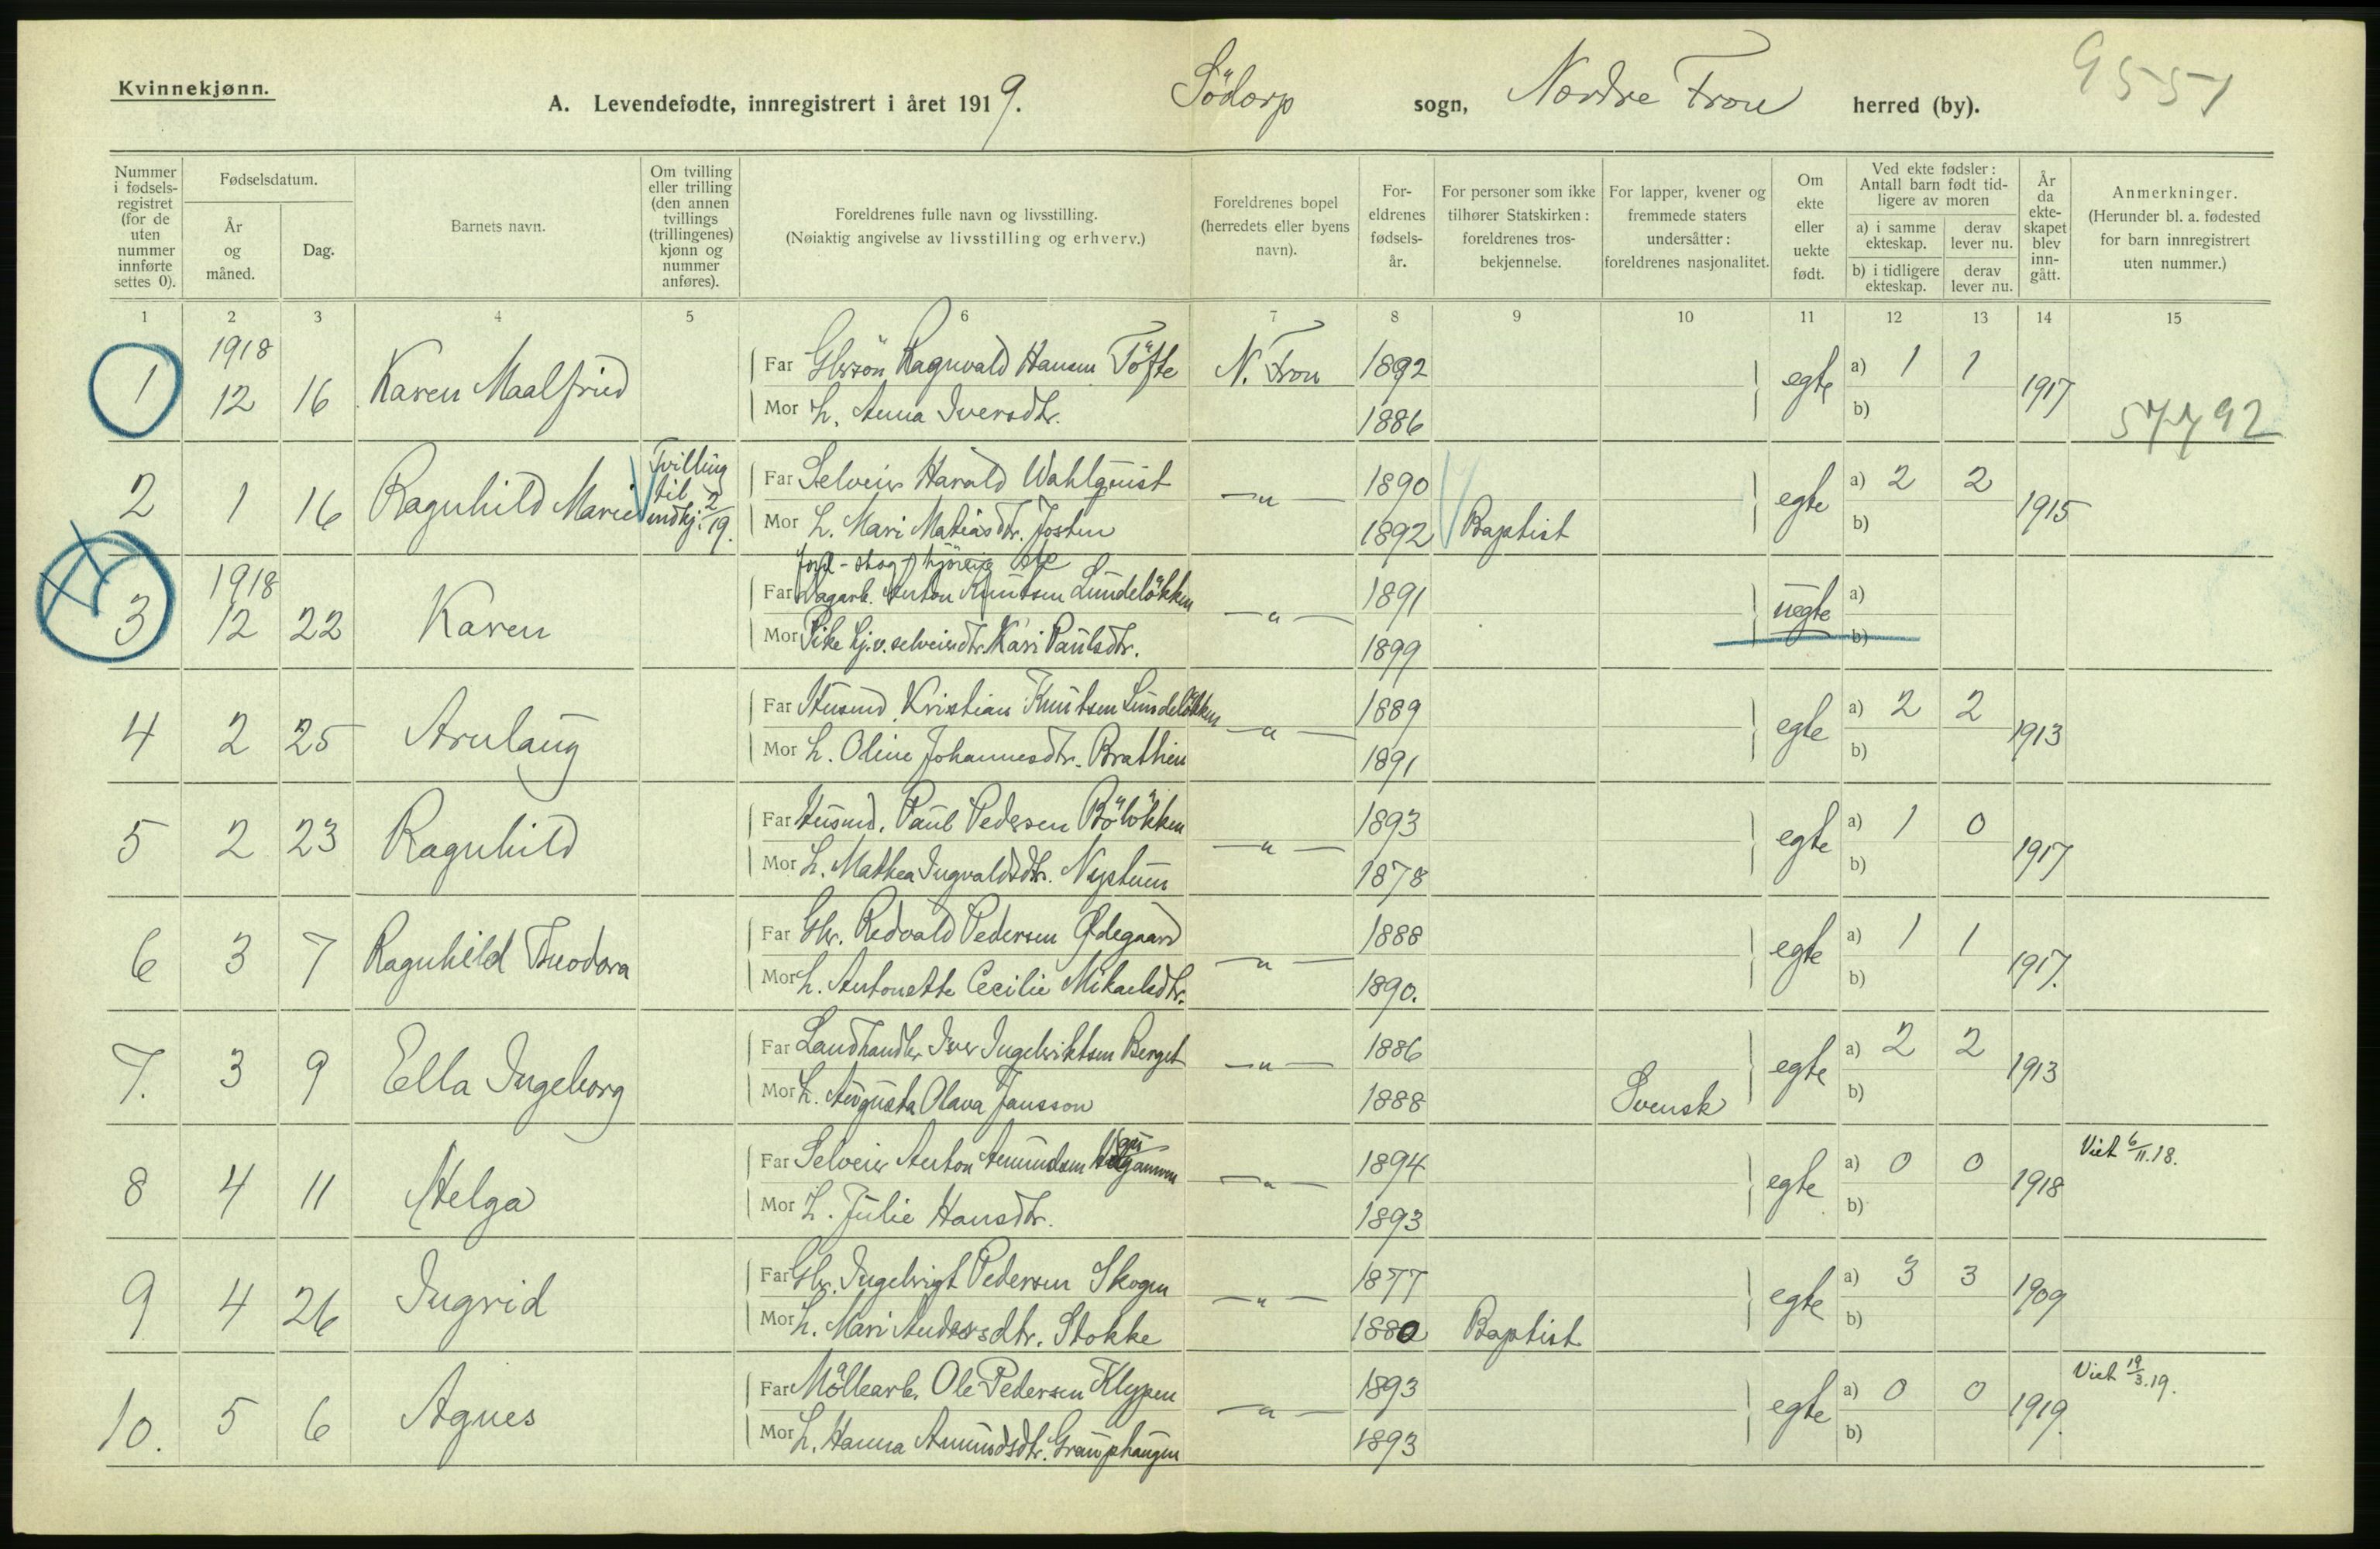 Kvinnekjønn.
A. Levendefødte, innregistrert i året 1919. Södorp sogn, Nordre Fron herred (by).
9551
Nummer i fødsels-registret (for de uten nummer innførte settes 0).
Fødselsdatum.
År og måned.
Dag.
Barnets navn.
Om tvilling eller trilling (den annen tvillings (trillingenes) kjønn og nummer anføres).
Foreldrenes fulle navn og livsstilling. (Nøiaktig angivelse av livsstilling og erhverv.)
Foreldrenes bopel (herredets eller byens navn).
For-eldrenes fødsels-år.
For personer som ikke tilhører Statskirken: foreldrenes tros-bekjennelse.
For lapper, kvener og fremmede staters undersåtter: foreldrenes nasjonalitet.
Om ekte eller uekte født.
Ved ekte fødsler: Antall barn født tid-ligere av moren
a) i samme ekteskap. derav lever nu.
b) i tidligere ekteskap. derav lever nu.
År da ekte-skapet blev inn-gått.
Anmerkninger. (Herunder bl. a. fødested for barn innregistrert uten nummer.)
1 2 3 4 5 6 7 8 9 10 11 12 13 14 15
1 1918 12 16 Karen Maalfrid Far Gbrsön Ragnvald Hansen Töfte N. Fron 1892 egte a) 1 1 1917
Mor h. Anna Iversdtr. 1886 b)
57792
2 1 16 Ragnhild Marie Tvilling til mdkj. 2/19. Far Selveier Harald Wahlquist —„— 1890 egte a) 2 2 1915
Mor h. Mari Matiasdtr. Josten 1892 Baptist b)
Jord- skog- kjöring etc
3 1918 12 22 Karen Far Dagarb. Anton Knutsen Lundelökken —„— 1891 uegte a)
Mor Pike hj.v. selveierdtr. Kari Paulsdtr. 1899 b)
4 2 25 Arnlaug Far Husmd. Kristian Knutsen Lundelökken —„— 1889 egte a) 2 2 1913
Mor h. Oline Johannesdtr. Brathien 1891 b)
5 2 23 Ragnhild Far Husmd. Paul Pedersen Bölökken —„— 1893 egte a) 1 0 1917
Mor h. Mathea Ingvaldsdtr. Nystuen 1878 b)
6 3 7 Ragnhild Theodora Far Gbr. Redvald Pedersen Ødegaard —„— 1888 egte a) 1 1 1917.
Mor h. Antonette Cecilie Mikaelsdtr. 1890. b)
7. 3 9 Ella Ingeborg Far Landhandler Iver Ingebriktsen Berget —„— 1886 egte a) 2 2 1913
Mor h. Augusta Olava Jansson 1888 Svensk b)
8 4 11 Helga Far Selveier Anton Amundsen —„— 1894 egte a) 0 0 1918 Viet 6/11.18.
Mor h. Julie Hansdtr. 1893 b)
9 4 26 Ingrid Far Gbr. Ingebrigt Pedersen Skogen —„— 1877 egte a) 3 3 1909
Mor h. Mari Andersdtr. Stokke 1880 Baptist b)
10. 5 6 Agnes Far Möllearb. Ole Pedersen Klypen —„— 1893 egte a) 0 0 1919. Viet 19/3.19.
Mor h. Hanna Amundsdtr. Grauphaugen 1893 b)